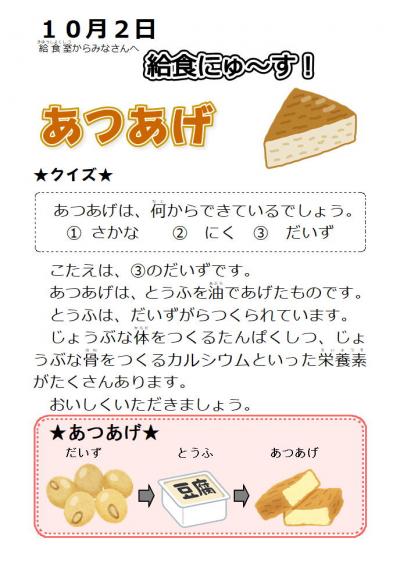 10月2日
給食室からみなさんへ
給食にゅ～す！
あつあげ
★クイズ★
あつあげは、何からできているでしょう。
① さかな　② にく　③ だいず
こたえは、③のだいずです。
あつあげは、とうふを油であげたものです。
とうふは、だいずがらつくられています。
じょうぶな体をつくるたんぱくしつ、じょ
うぶな骨をつくるカルシウムといった栄養素
がたくさんあります。
おいしくいただきましょう。
★あつあげ★
だいず　とうふ　あつあげ
豆腐